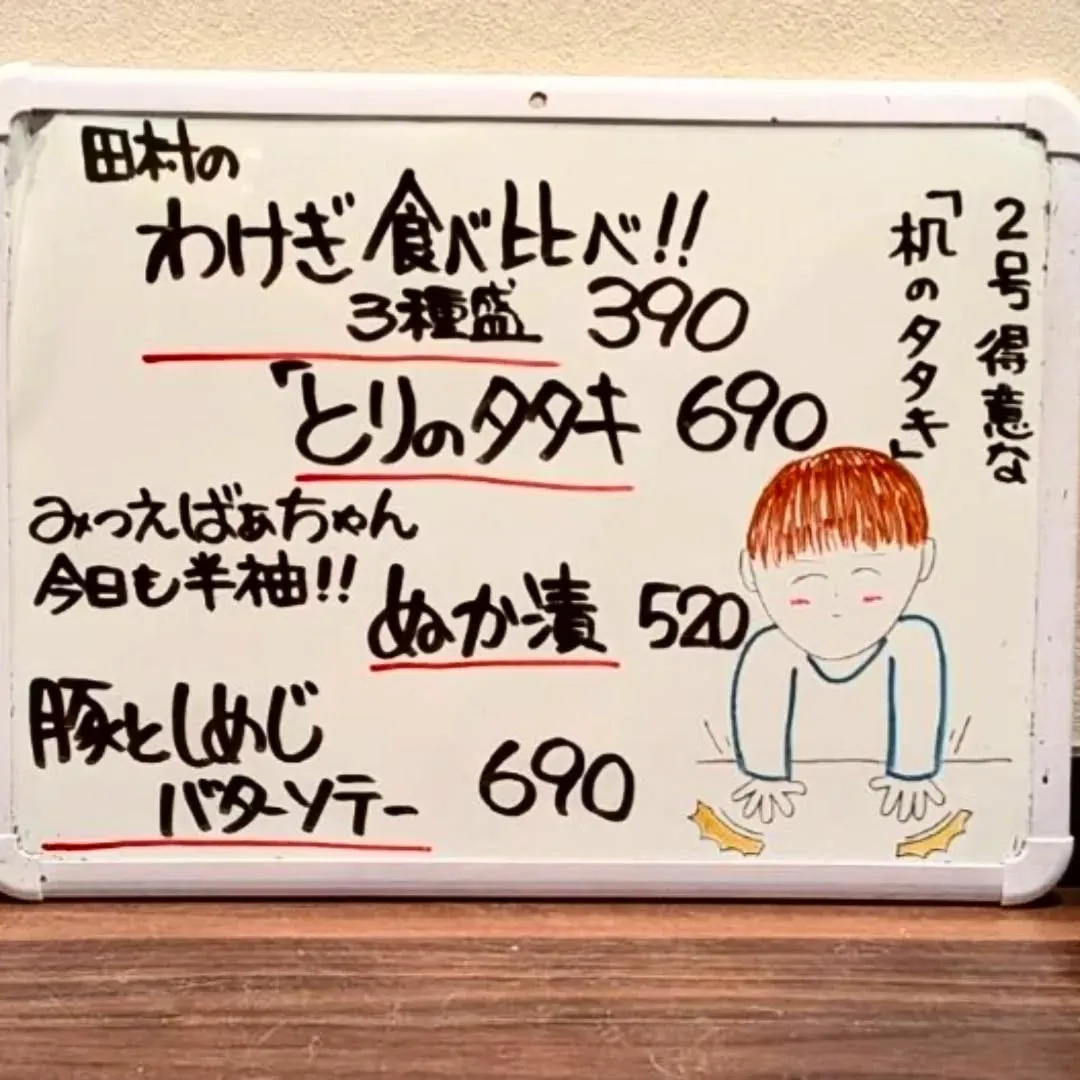 田村の
わけぎ食べ比べ!!
3種盛 390
「とりのタタキ 690
みつえばぁちゃん
今日も半袖!!
ぬか漬 520
豚としめじ
バターソテー 690
2号得意な
「机のタタキ」